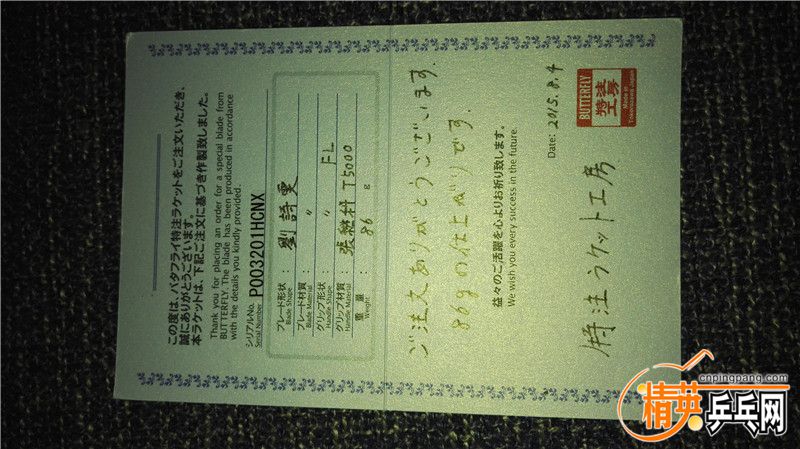 この度は、バタフライ特注ラケットをご注文いただき、
誠にありがとうございます。
本ラケットは、下記ご注文に基づき作製致しました。
Thank you for placing an order for a special blade from
BUTTERFLY. The blade has been produced in accordance
with the details you kindly provided.
シリアルNo.
Serial Number
P003201HCNX
ブレード形状 : 劉詩雯
Blade Shape
ブレード材質 : 〃
Blade Material
グリップ形状 : 〃 FL
Handle Shape
グリップ材質 : 張継科 T5000
Handle Material
重量 : 86 g
Weight
ご注文ありがとうございます.
86gの仕上がりです.
益々のご活躍を心よりお祈り致します。
We wish you every success in the future.
Date: 2015.8.4
BUTTERFLY
特装
工房
Made in
Tokorozawa Japan
特注ラケット工房
cnpingpang.com
精英乒乓网